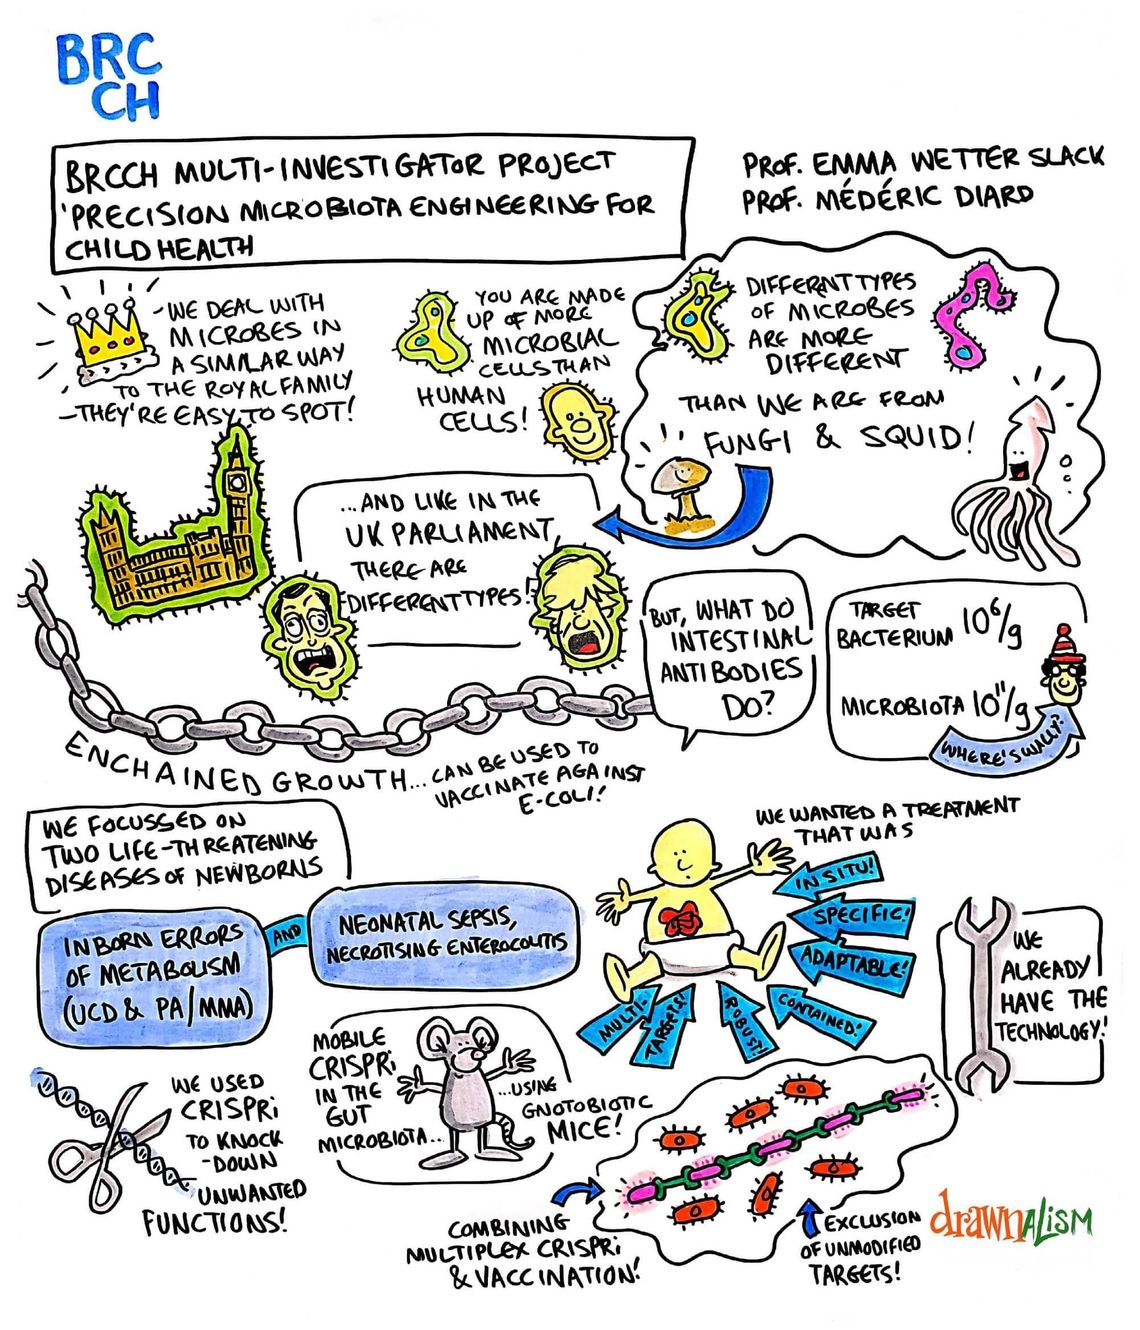 BRC
CH
BRCCH MULTI-INVESTIGATOR PROJECT
'PRECISION MICROBIOTA ENGINEERING FOR
CHILD HEALTH
PROF. EMMA WETTER SLACK
PROF. MÉDÉRIC DIARD
-WE DEAL WITH
MICROBES IN
A SIMILAR WAY
TO THE ROYAL FAMILY
-THEY'RE EASY TO SPOT!
YOU ARE MADE
UP OF MORE
MICROBIAL
CELLS THAN
HUMAN
CELLS!
DIFFERNT TYPES
OF MICROBES
ARE MORE
DIFFERENT
THAN WE ARE FROM
FUNGI & SQUID!
...AND LIKE IN THE
UK PARLIAMENT,
THERE ARE
DIFFERENT TYPES!
BUT, WHAT DO
INTESTINAL
ANTIBODIES
DO?
TARGET
BACTERIUM 10⁶/g
MICROBIOTA 10¹¹/g
WHERE'S WALLY?
ENCHAINED GROWTH...CAN BE USED TO
VACCINATE AGAINST
E-COLI!
WE FOCUSSED ON
TWO LIFE-THREATENING
DISEASES OF NEWBORNS
INBORN ERRORS
OF METABOLISM
(UCD & PA/MMA)
AND
NEONATAL SEPSIS,
NECROTISING ENTEROCOLITIS
WE WANTED A TREATMENT
THAT WAS
IN SITU!
SPECIFIC!
ADAPTABLE!
CONTAINED!
ROBUST!
MULTI-
TARGETS!
WE
ALREADY
HAVE THE
TECHNOLOGY!
WE USED
CRISPRi
TO KNOCK
-DOWN
UNWANTED
FUNCTIONS!
MOBILE
CRISPRi
IN THE
GUT
MICROBIOTA...
...USING
GNOTOBIOTIC
MICE!
COMBINING
MULTIPLEX CRISPRi
& VACCINATION!
EXCLUSION
OF UNMODIFIED
TARGETS!
drawnALISM